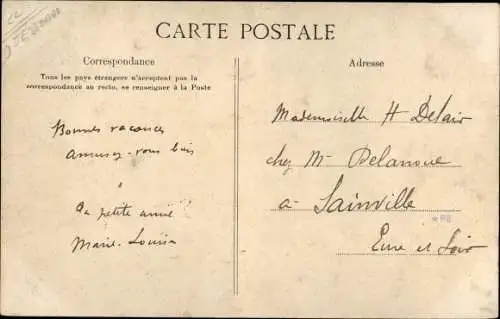 CARTE POSTALE
Correspondance
Tous les pays étrangers n'acceptent pas la
correspondance au recto, se renseigner à la Poste
Bonnes vacances
amusez-vous bien
Ta petite amie
Marie-Louise
Adresse
Mademoiselle H Delair
chez Mr Delanoue
à Sainville
Eure et Loir